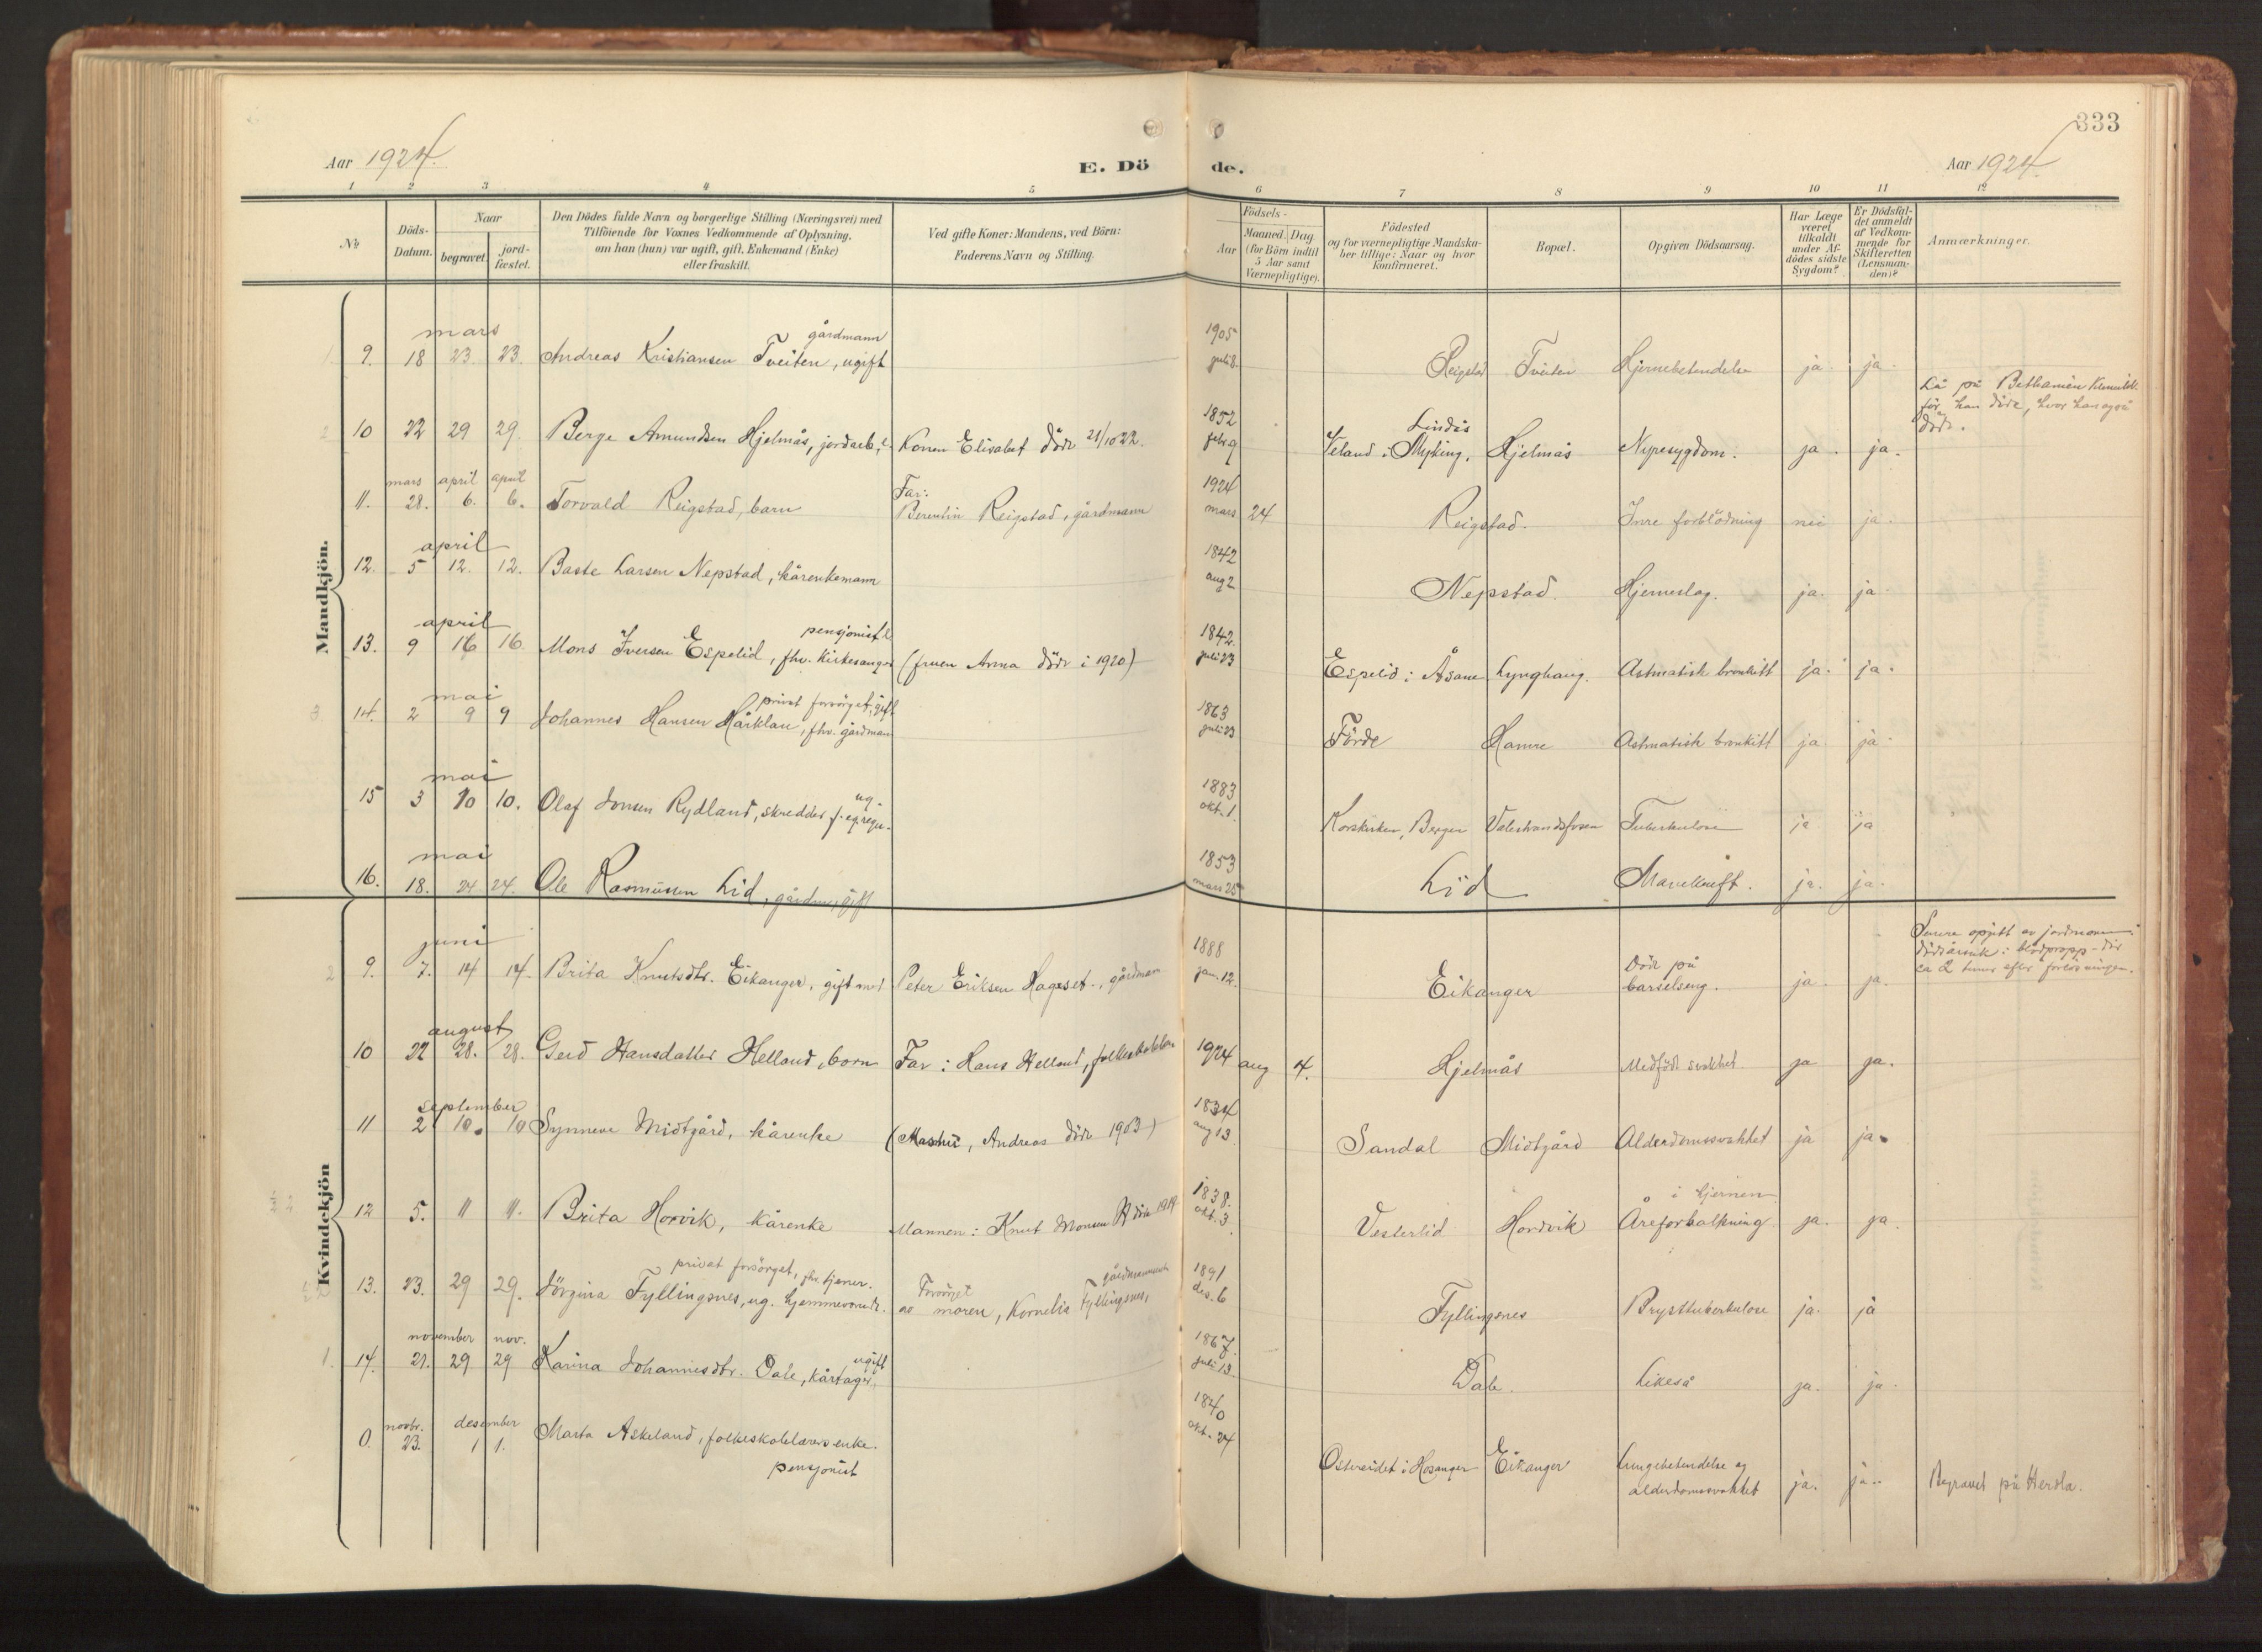 333
Aar 1924.
E. Dö de.
Aar 1924.
1 2 3 4 5 6 7 8 9 10 11 12
№
Döds-Datum.
Naar
begravet.
jord-fæstet.
Den Dödes fulde Navn og borgerlige Stilling (Næringsvei) med
Tilföiende for Voxnes Vedkommende af Oplysning,
om han (hun) var ugift, gift, Enkemand (Enke)
eller fraskilt.
Ved gifte Koner: Mandens, ved Börn:
Faderens Navn og Stilling.
Födsels-
Aar
Maaned. Dag
(for Börn indtil
5 Aar samt
Værnepligtige).
Födested
og for værnepligtige Mandska-
ber tillige: Naar og hvor
konfirmeret.
Bopæl.
Opgiven Dödsaarsag.
Har Læge
været
tilkaldt
under Af-
dödes sidste
Sygdom?
Er Dödsfal-
det anmeldt
af Vedkom-
mende for
Skifteretten
(Lensman-
den)?
Anmærkninger.
Mandkjön.
mars gårdmann 1905
9. 18 23. 23. Andreas Kristiansen Tveiten, ugift juli 8. Reigstad Tveiten Hjernebetendelse ja ja.
Lå på Bethanien
før han døde, hvor han også
døde.
1852 Lindås
10 22 29 29. Berge Amundsen Hjelmås, jordarb., e. Konen Elisabet döde 21/10 22. febr 9 Veland i Myking, Hjelmås Nyresygdom. ja. ja.
mars april april Far: 1924
11. 28. 6. 6. Torvald Reigstad, barn Berentin Reigstad, gårdmann mars 24 Reigstad. Inre forblödning nei ja.
april 1842
12. 5 12. 12. Baste Larsen Nepstad, kårenkemann aug 2 Nepstad. Hjerneslag. ja. ja
april pensjonist 1842.
13. 9 16 16 Mons Iversen Espelid, fhv. kirkesanger (fruen Anna döde i 1920) juli 23 Espelid i Åsane Lynghaug. Astmatisk bronkitt ja. ja.
mai privat forsörget, gift 1863
3. 14. 2 9 9 Johannes Hansen Hårklau, fhv. gårdman juli 23 Förde Hamre Astmatisk bronkitt ja ja
mai ug. 1883
15 3 10 10. Olaf Jonsen Rydland, skredder f. eg. regn. okt. 1. Korskirken, Bergen Valestrandsfossen Tuberkulose ja ja
mai 1853
16. 18. 24 24. Ole Rasmussen Lid, gårdm., gift mars 25 Lid Mavekreft. ja. ja.
Kvindekjön
juni 1888 Död på
2 9. 7. 14 14. Brita Knutsdtr. Eikanger, gift med Peter Eriksen Hageset, gårdman jan. 12. Eikanger barselseng. ja. ja.
Senere opgitt av jordmoren:
dödsårsak: blodpropp - död
ca 2 timer efter forlösningen.
august
10 22 28. 28. Gerd Hansdatter Helland, barn Far: Hans Helland, 1924 aug 4. Hjelmås Medfödt svakhet ja ja.
september 1834
11 2 10. 10 Synneve Midtgård, kårenke (Andreas döde 1903) aug 13. Sandal Midtgård Alderdomssvakhet ja ja.
1838. i hjernen
12 5. 11 11. Brita Horvik, kårenke Mannen: Knut Monsen H. döde okt. 3. Vesterlid Hordvik Åreforkalkning ja. ja.
privat forsörget, fhv. tjener. Forsörget 1891
13. 23. 29 29. Jörgina Fyllingsnes, ug. hjemmeværende. av moren, Kornelia Fyllingsnes, des. 6 Fyllingsnes Brysttuberkulose ja. ja
november nov. ugift 1867.
1. 14. 21. 29 29 Karina Johannesdtr. Dale, kårtager, juli 13. Dale. Likeså ja. ja.
novbr. desember 1840
0. 23. 1 1. Marta Askeland, folkeskolelærers enke. okt. 24 Ostereidet i Hosanger Eikanger Lungebetendelse og
pensjonist alderdomssvakhet ja. ja. Begravet på Herdla.